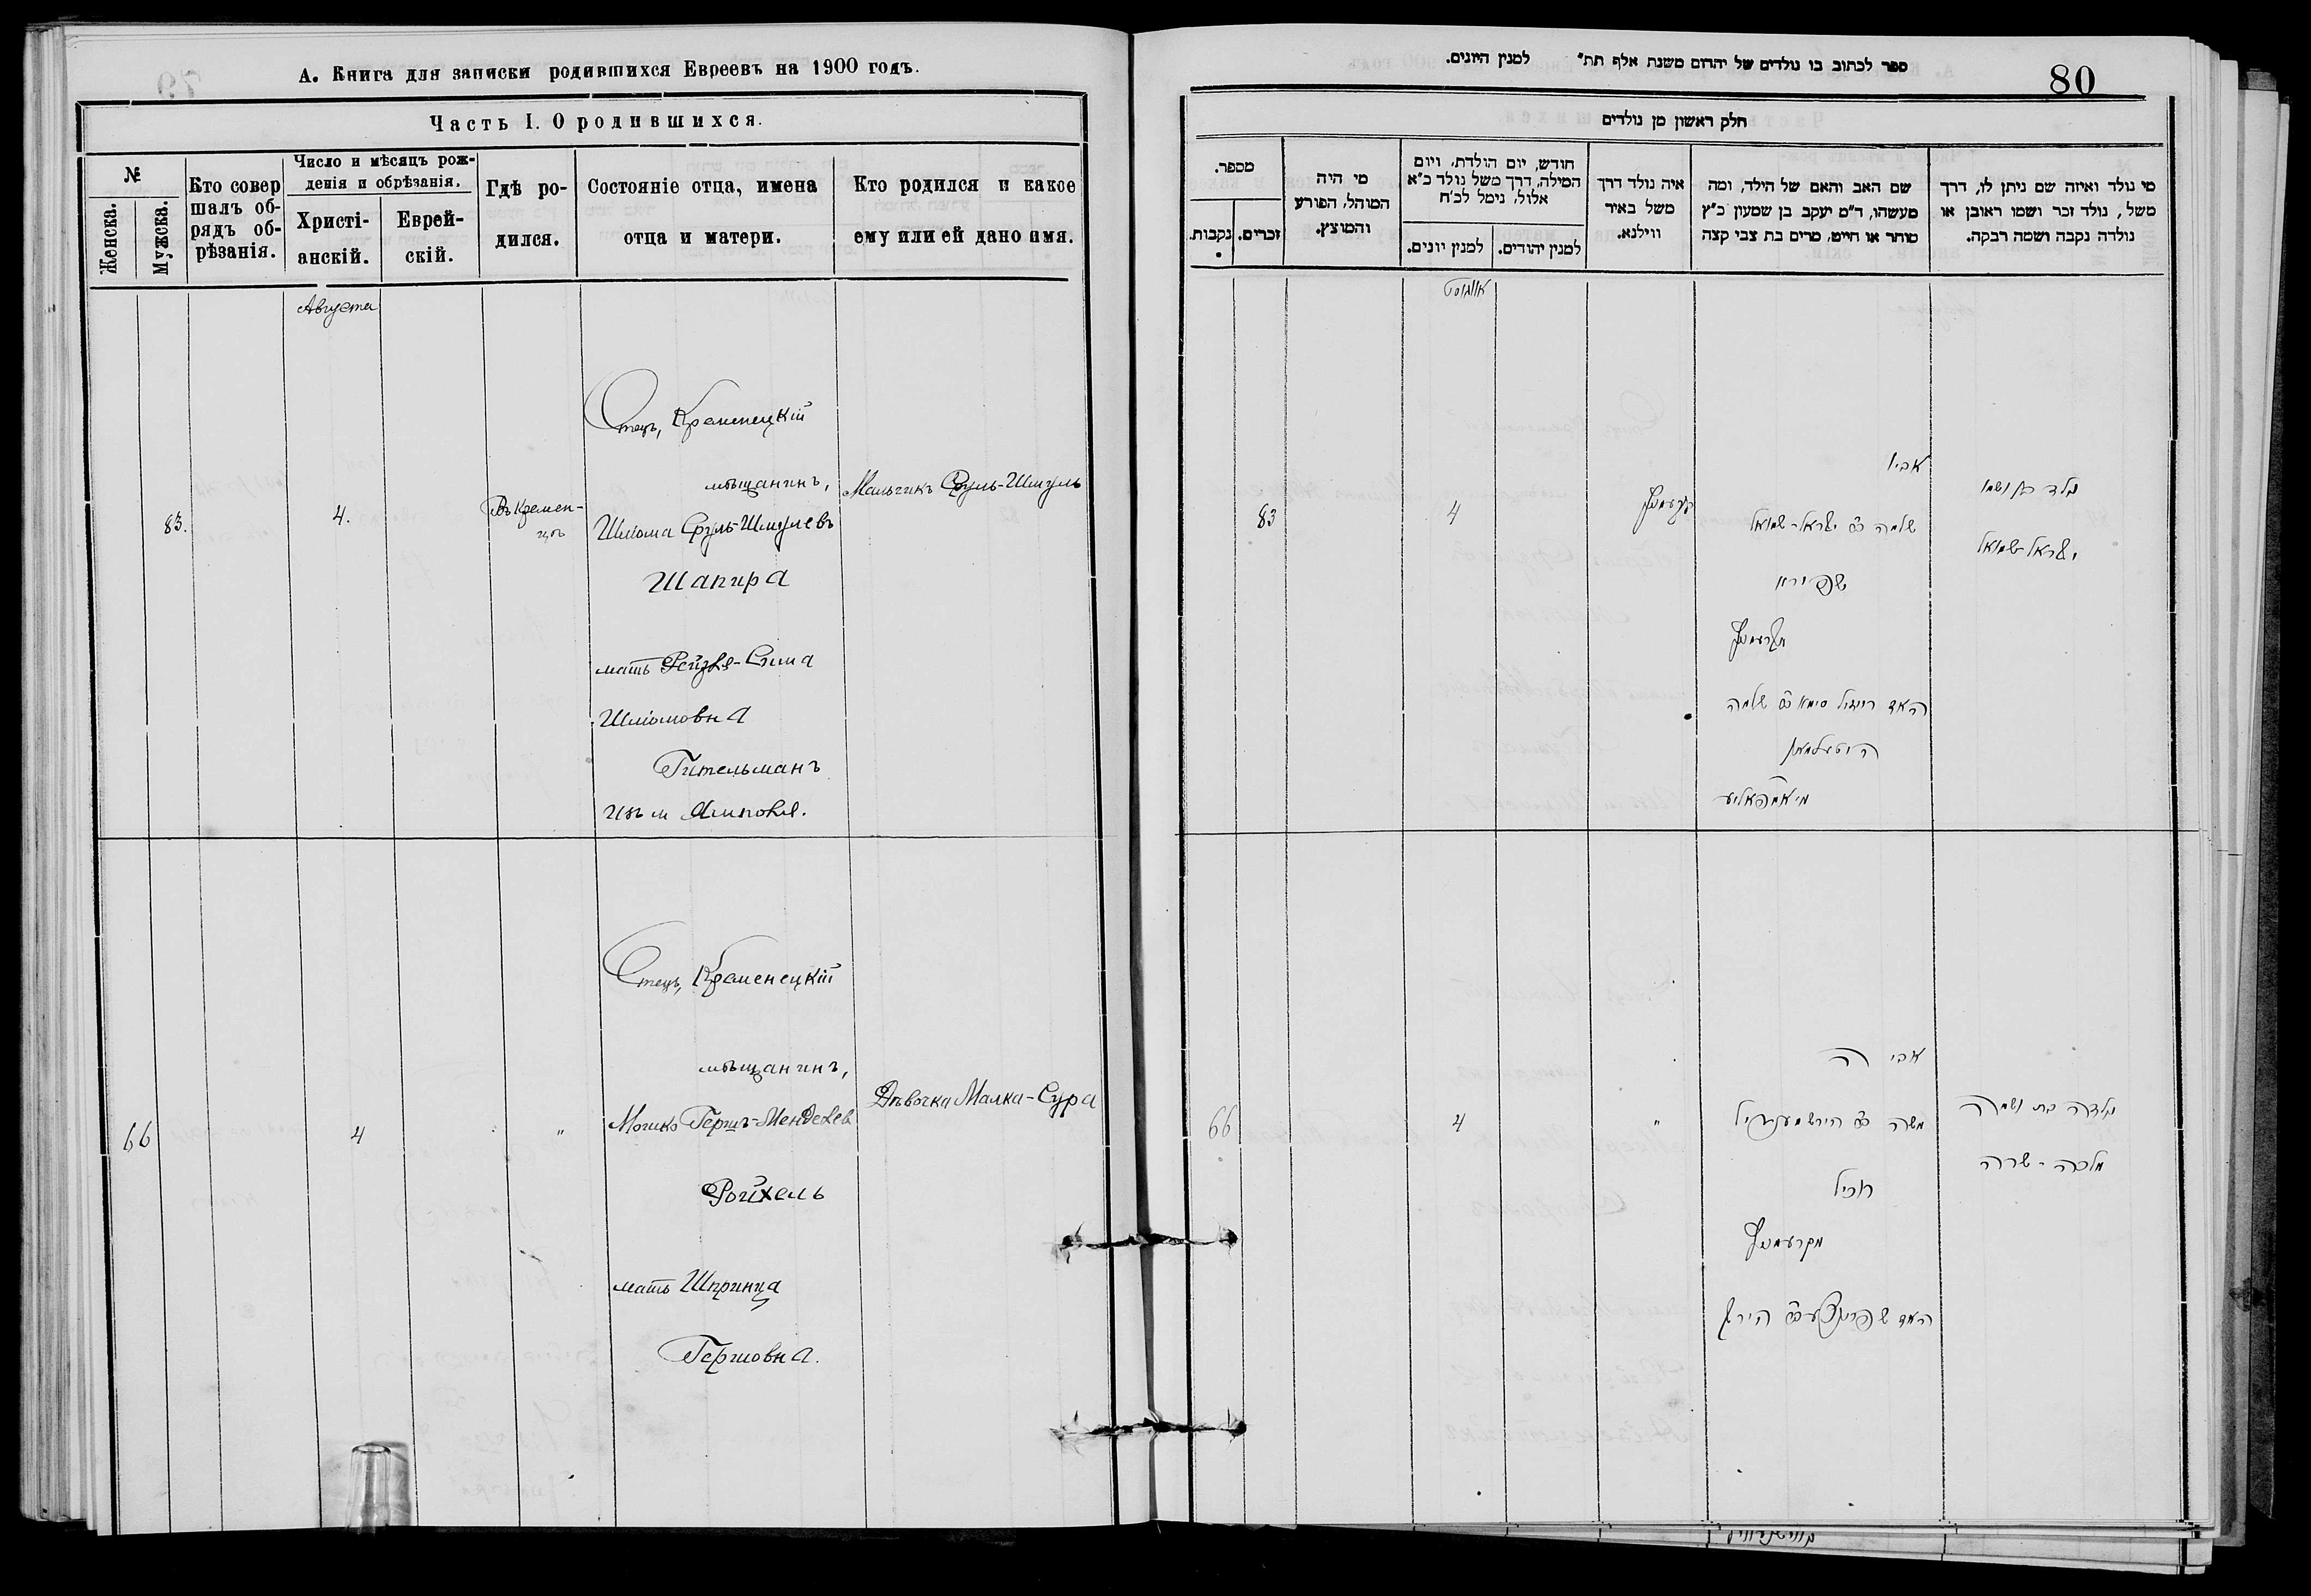 А. Книга для записки родившихся Евреевъ на 1900 годъ.
Часть I. О родившихся.
№
Женска.
Мужска.
Кто совер
шалъ об-
рядъ об-
рѣзанія.
Число и мѣсяцъ рож-
денія и обрѣзанія.
Христі-
анскій.
Еврей-
скій.
Гдѣ ро-
дился.
Состояніе отца, имена
отца и матери.
Кто родился и какое
ему или ей дано имя.
Августа
83.
4.
Въ Кремен-
цѣ
Отецъ, Кременецкій
мѣщанинъ,
Шліома Сруль-Шмулевъ
Шапира
мать Рейзля-Сима
Шліомовна
Гительманъ
изъ м Ямполя.
Мальчикъ Сруль-Шмуль
66
4
"
Отецъ, Кременецкій
мѣщанинъ,
Мошко Гершъ-Менделев
Ройхель
мать Шпринца
Гершовна.
Дѣвочка Малка-Сура
ספר לכתוב בו נולדים של יהודים משנת אלף תת" למנין היונים.
80
חלק ראשון מן נולדים
מספר.
נקבות.
זכרים.
מי היה
המוהל, הפורע
והמוצץ.
חודש, יום הולדת, ויום
המילה, דרך משל נולד כ"א
אלול, נימל לכ"ח
למנין יונים.
למנין יהודים.
איה נולד דרך
משל באיר
ווילנא.
שם האב והאם של הילד, ומה
מעשהו, ד"מ יעקב בן שמעון כ"ץ
סוחר או חייט, מרים בת צבי קצה
מי נולד ואיזה שם ניתן לו, דרך
משל, נולד זכר ושמו ראובן או
נולדה נקבה ושמה רבקה.
אווגוסט
83
4
קרעמניץ
אביו
שלמה ב"ר ישראל-שמואל
שפירא
מקרעמניץ
האם רייזיל סימא ב"ר שלמה
היטעלמאן
מיאמפאליע
נולד בן ושמו
ישראל-שמואל
66
4
"
אביה
משה ב"ר הירש מענדיל
רוכיל
מקרעמניץ
האם שפרינצע ב"ר הירש
נולדה בת ושמה
מלכה-שרה